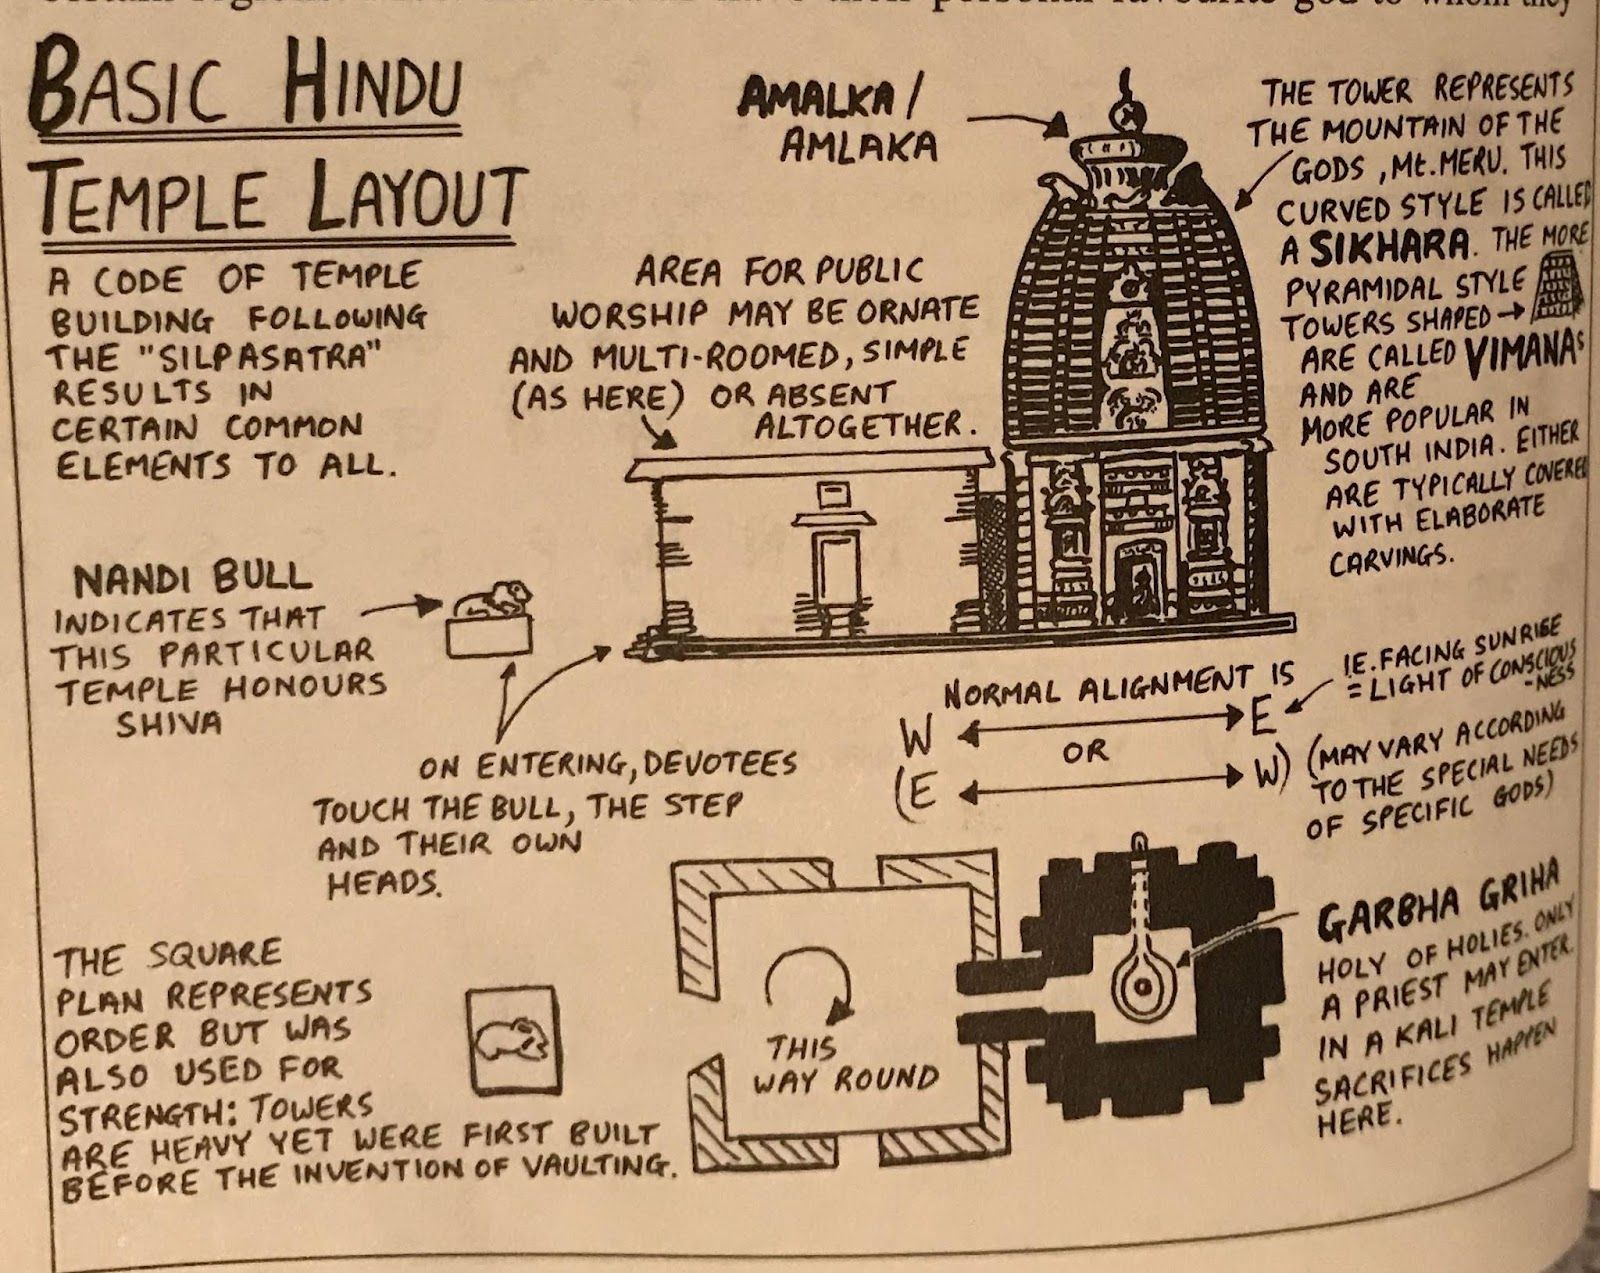 whom they
BASIC HINDU
TEMPLE LAYOUT
A CODE OF TEMPLE
BUILDING FOLLOWING
THE "SILPASATRA"
RESULTS IN
CERTAIN COMMON
ELEMENTS TO ALL.
AMALKA/
AMLAKA
THE TOWER REPRESENTS
THE MOUNTAIN OF THE
GODS, Mt. MERU. THIS
CURVED STYLE IS CALLED
A SIKHARA. THE MORE
PYRAMIDAL STYLE
TOWERS SHAPED →
ARE CALLED VIMANAs
AND ARE
MORE POPULAR IN
SOUTH INDIA. EITHER
ARE TYPICALLY COVERED
WITH ELABORATE
CARVINGS.
AREA FOR PUBLIC
WORSHIP MAY BE ORNATE
AND MULTI-ROOMED, SIMPLE
(AS HERE) OR ABSENT
ALTOGETHER.
NANDI BULL
INDICATES THAT
THIS PARTICULAR
TEMPLE HONOURS
SHIVA
ON ENTERING, DEVOTEES
TOUCH THE BULL, THE STEP
AND THEIR OWN
HEADS.
NORMAL ALIGNMENT IS
W ↔ E
OR
(E ↔ W)
IE. FACING SUNRISE
= LIGHT OF CONSCIOUS
-NESS
(MAY VARY ACCORDING
TO THE SPECIAL NEEDS
OF SPECIFIC GODS)
THE SQUARE
PLAN REPRESENTS
ORDER BUT WAS
ALSO USED FOR
STRENGTH: TOWERS
ARE HEAVY YET WERE FIRST BUILT
BEFORE THE INVENTION OF VAULTING.
THIS
WAY ROUND
GARBHA GRIHA
HOLY OF HOLIES. ONLY
A PRIEST MAY ENTER.
IN A KALI TEMPLE
SACRIFICES HAPPEN
HERE.